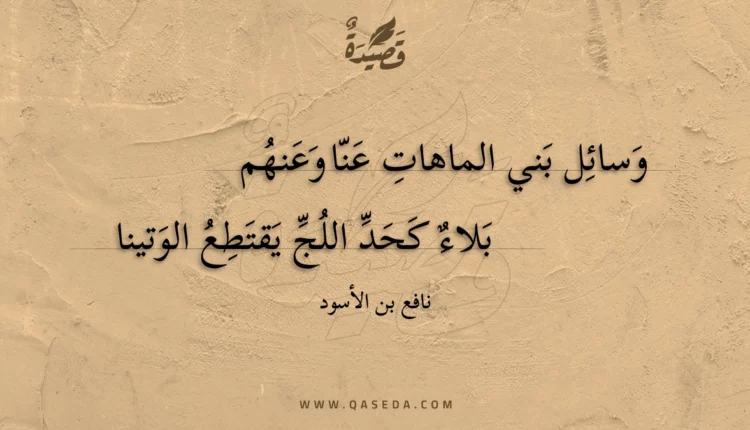 قَصِيدَةٌ
وَسائِل بَني الماهاتِ عَنّا وَعَنهُم
بَلاءٌ كَحَدِّ اللُجِّ يَقتَطِعُ الوَتينا
نافع بن الأسود
WWW.QASEDA.COM